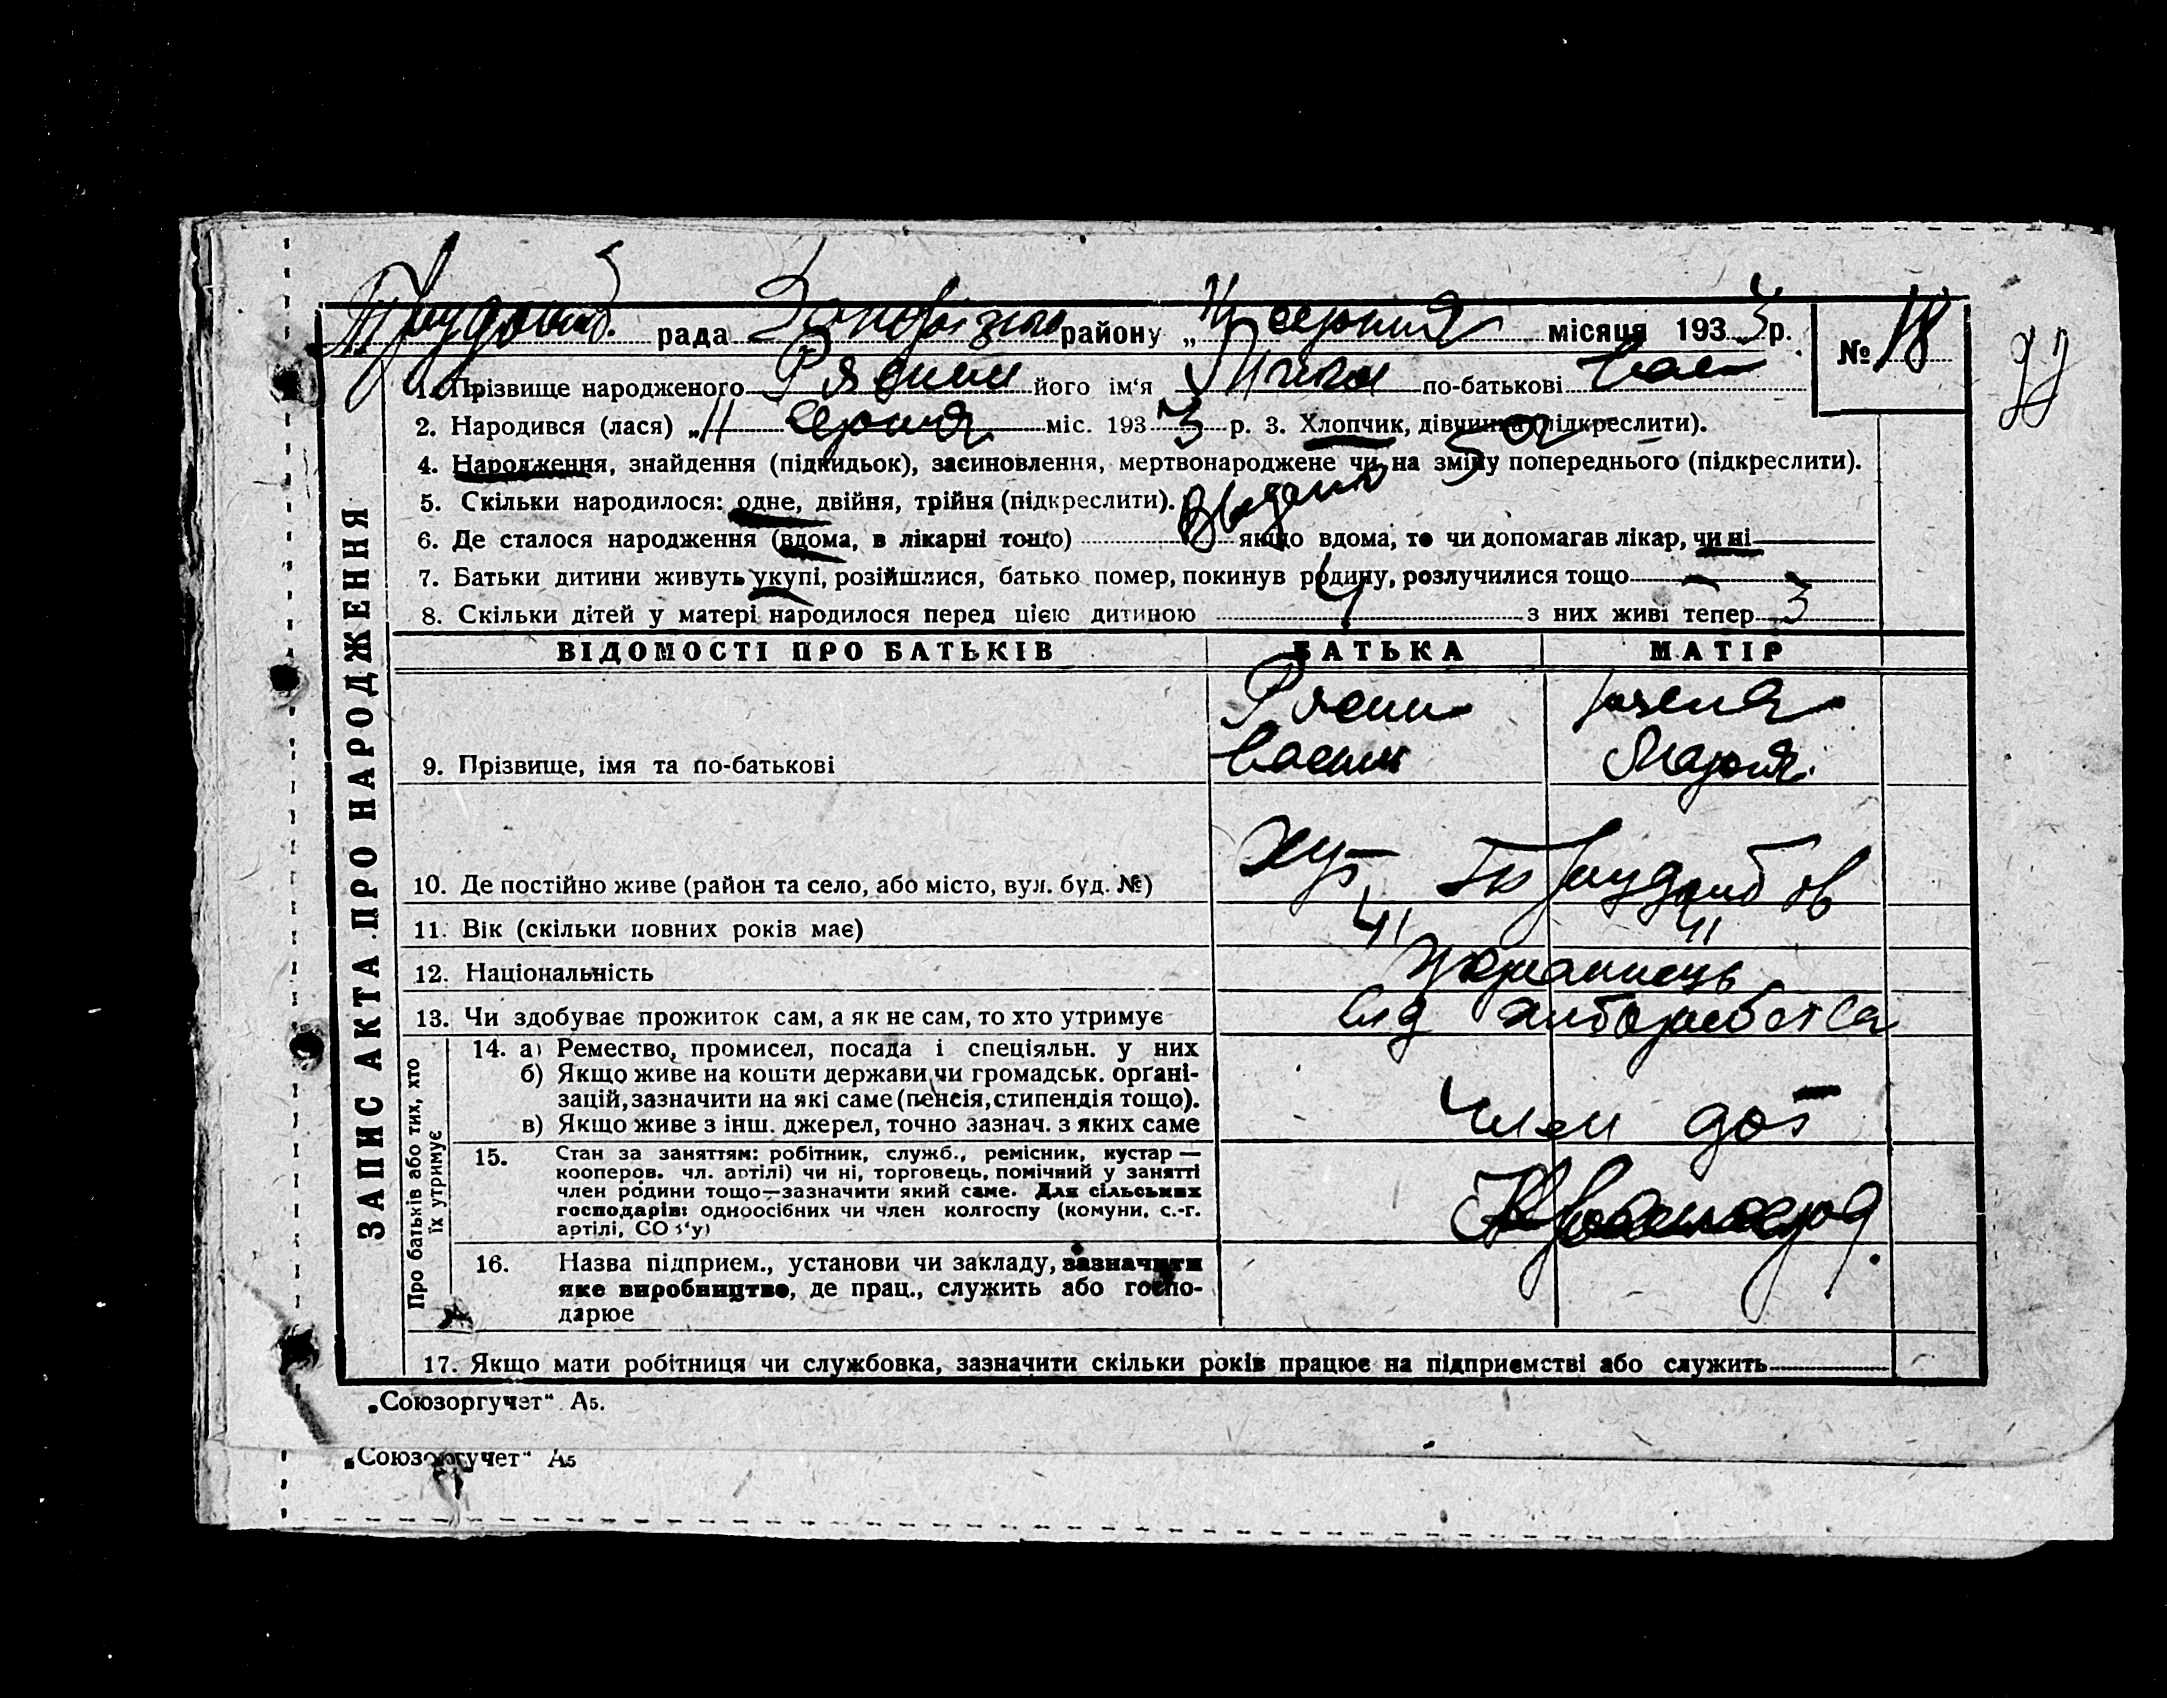 рада районурайону „ серпня місяця 1933 р. № 18
1. Прізвище народженого його ім‘я по-батькові Вас
2. Народився (лася) „11 серпня міс. 1933 р. 3. Хлопчик, дівчинка (підкреслити).
4. Народження, знайдення (підкидьок), засиновлення, мертвонароджене чи на зміну попереднього (підкреслити).
5. Скільки народилося: одне, двійня, трійня (підкреслити).
6. Де сталося народження (вдома, в лікарні тощо) якщо вдома, то чи допомагав лікар, чи ні
7. Батьки дитини живуть укупі, розійшлися, батько помер, покинув родину, розлучилися тощо
8. Скільки дітей у матері народилося перед цією дитиною 4 з них живі тепер 3
ЗАПИС АКТА ПРО НАРОДЖЕННЯ
ВІДОМОСТІ ПРО БАТЬКІВ БАТЬКА МАТІР
9. Прізвище, імя та по-батькові Марія
10. Де постійно живе (район та село, або місто, вул. буд. №) Хут
11. Вік (скільки повних років має) 41 41
12. Національність
13. Чи здобуває прожиток сам, а як не сам, то хто утримує
Про батьків або тих, хто їх утримує
14. а) Ремество, промисел, посада і спеціяльн. у них
б) Якщо живе на кошти держави чи громадськ. органі-
зацій, зазначити на які саме (пенсія, стипендія тощо).
в) Якщо живе з інш. джерел, точно зазнач. з яких саме член
15. Стан за заняттям: робітник, служб., ремісник, кустар —
кооперов. чл. артілі) чи ні, торговець, помічний у занятті
член родини тощо—зазначити який саме. Для сільських
господарів: одноосібних чи член колгоспу (комуни, с.-г.
артілі, СОЗ‘у)
16. Назва підприєм., установи чи закладу, зазначити
яке виробництво, де прац., служить або госпо-
дарює
17. Якщо мати робітниця чи службовка, зазначити скільки років працює на підприємстві або служить
„Союзоргучет“ А5.
„Союзоргучет“ А5